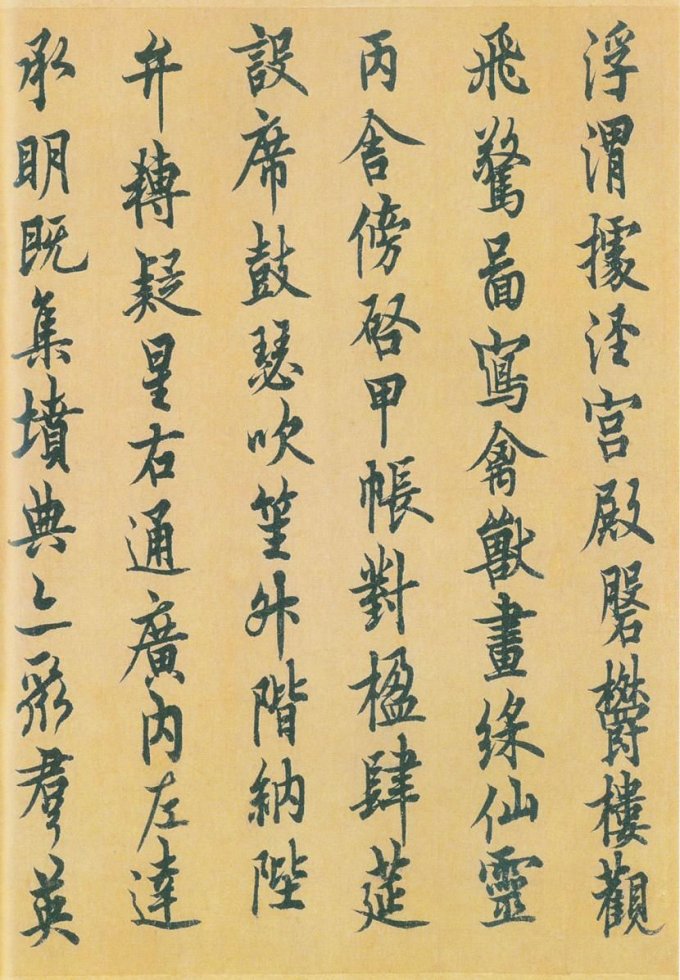 浮渭據涇宮殿磐欝樓觀
飛驚啚寫禽獸畫綵仙靈
丙舍傍啓甲帳對楹肆筵
設席鼓瑟吹笙升階納陛
弁轉疑星右通廣內左達
承明既集墳典亦聚羣英